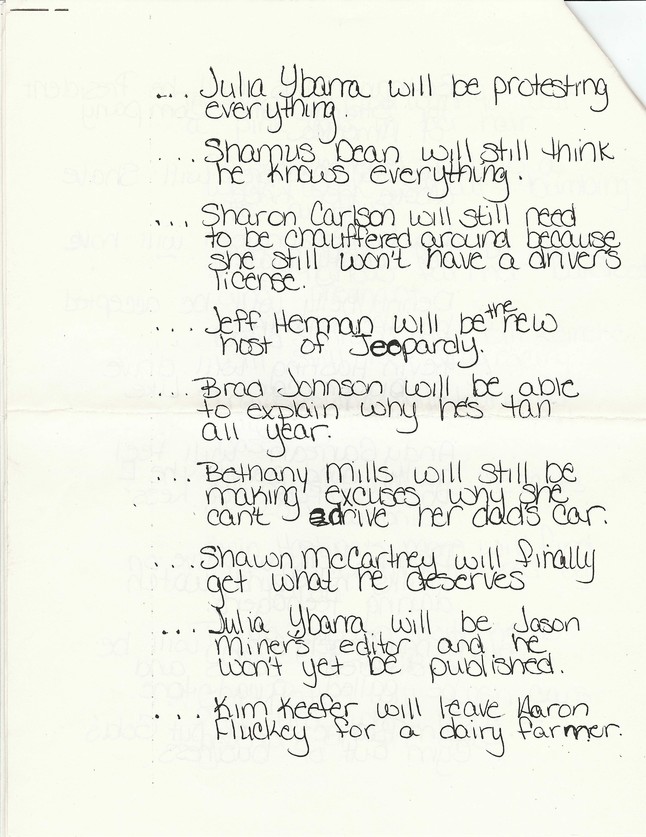 ... Julia Ybarra will be protesting
everything.
... Shamus Dean will still think
he knows everything.
... Sharon Carlson will still need
to be chauffered around because
she still won't have a driver's
license.
... Jeff Herman will be the new
host of Jeopardy.
... Brad Johnson will be able
to explain why he's tan
all year.
... Bethany Mills will still be
making excuses why she
can't drive her dad's car.
... Shawn McCartney will finally
get what he deserves
... Julia Ybarra will be Jason
Miner's editor and he
won't yet be published.
... Kim Keefer will leave Aaron
Fluckey for a dairy farmer.